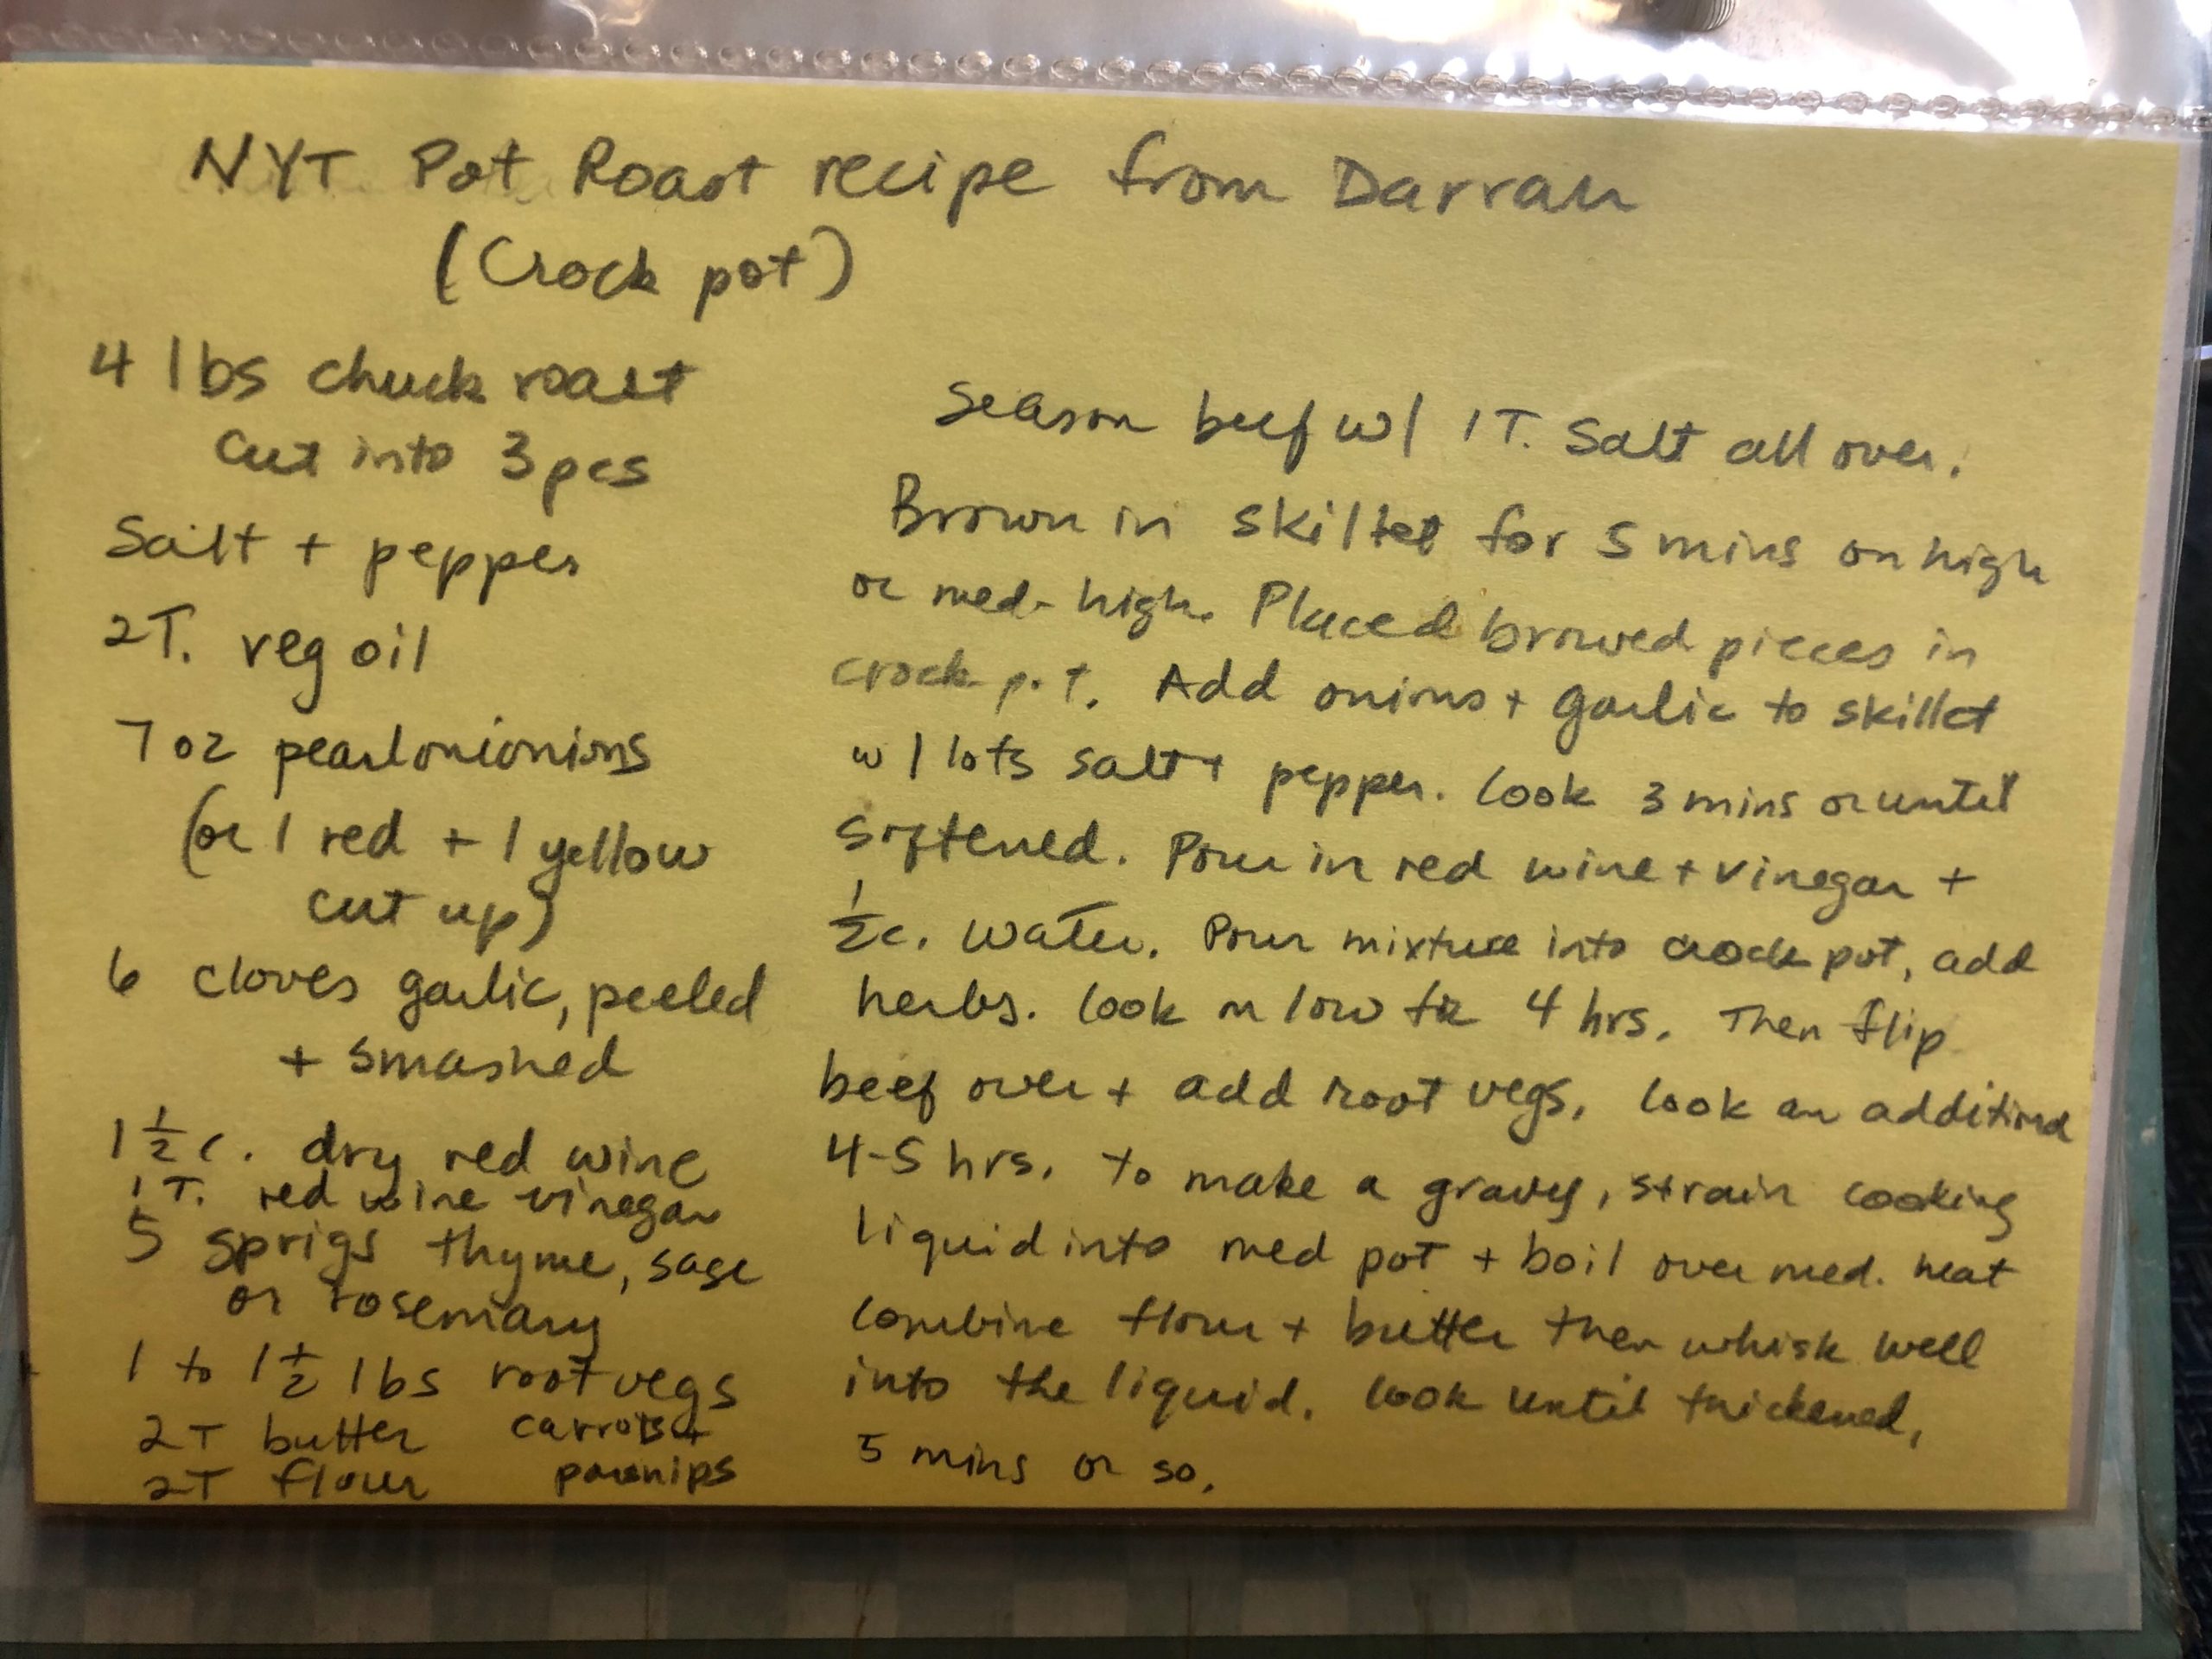 NYT Pot Roast recipe from Darrah
(Crock pot)
4 lbs chuck roast
cut into 3 pcs
Salt + pepper
2T. veg oil
7 oz pearlonionions
(or 1 red + 1 yellow
cut up)
6 cloves garlic, peeled
+ smashed
1 1/2 c. dry red wine
1 T. red wine vinegar
5 sprigs thyme, sage
or rosemary
1 to 1 1/2 lbs root vegs
carrots +
parsnips
2T butter
2T flour
Season beef w/ 1T. Salt all over.
Brown in skillet for 5 mins on high
or med-high. Placed browed pieces in
crock pot. Add onions + garlic to skillet
w/ lots salt + pepper. Cook 3 mins or until
softened. Pour in red wine + vinegar +
1/2 c. water. Pour mixture into crock pot, add
herbs. Cook on low for 4 hrs. Then flip
beef over + add root vegs. Cook an additional
4-5 hrs. To make a gravy, strain cooking
liquid into med pot + boil over med. heat
Combine flour + butter then whisk well
into the liquid. Cook until thickened,
5 mins or so.